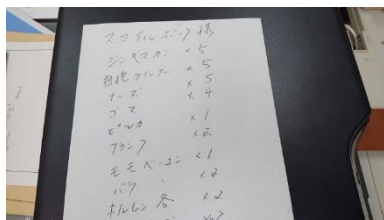 スマイルポーク様
ジンギスカン ×5
粗挽ウインナー ×5
チーズ ×5
ゴマ ×4
ピルカ ×1
フランク ×2
モモベーコン ×1
バラ 〃 ×2
ホルモン各 ×2